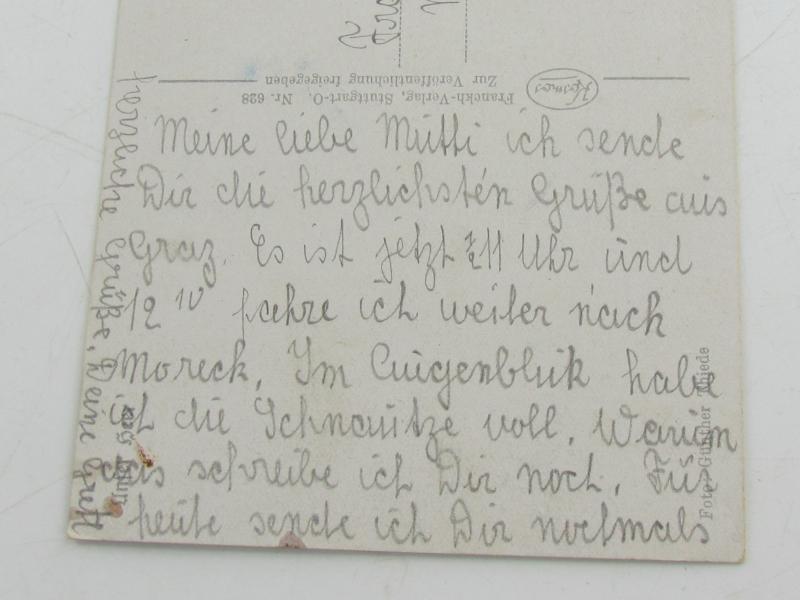 Franckh-Verlag, Stuttgart-O. Nr. 628
Zur Veröffentlichung freigegeben
Kosmos
Meine liebe Mutti ich sende
Dir die herzlichsten Grüße aus
Graz. Es ist jetzt 11 Uhr und
12 10 fahre ich weiter nach
Moreck. Im Augenblik habe
ich die Schnautze voll. Warum
das schreibe ich Dir noch. Für
heute sende ich Dir nochmals
herzliche Grüße. Deine
Foto: Günther Thiede